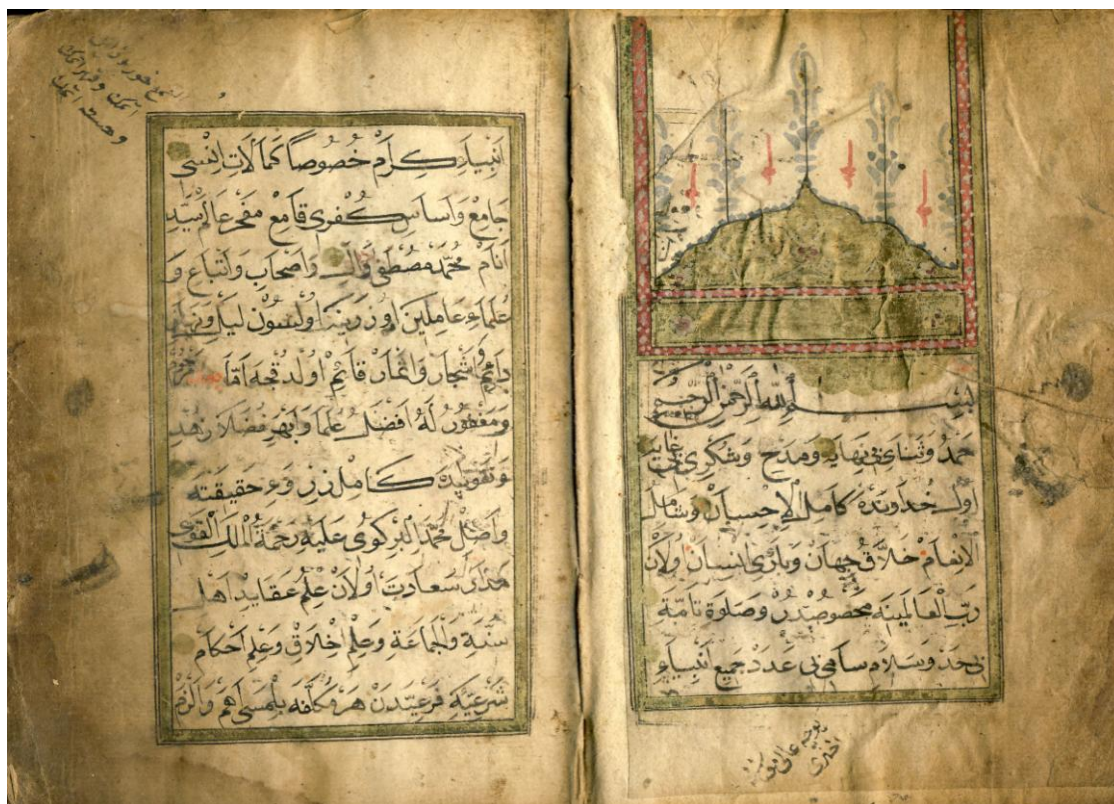 بسم الله الرحمن الرحيم
حمد و ثنای بی نهایه و مدح و شکری بی غایه
اول خداونده كامل الاحسان و شامل
الانعام خلاق جهان و باری انسان اولان
رب العالمینه مخصوصدر و صلوة تامة
بی حد و سلام سامی بی عدد جمیع انبیاء
انبیاء كرام خصوصا كمالات انسی
جامع و اساس كفری قامع مفخر عالم سید
انام محمد مصطفی و آل و اصحاب و اتباع و
علماء عاملین اوزرینه اولسون لیل و نهار
دائم و اشجار و اثمار قائم اولدقجه اما
و مغفور له افضل علما و ابهر فضلا زهد
و تقویده كامل حقیقته
واصل محمد البركوی علیه رحمة الملك القوی
سعادت اولان علم عقاید اهل
سنة والجماعة و علم اخلاق و علم احكام
شرعیه فرعیه دن هر مكلفه بلمسی اهم و الزم